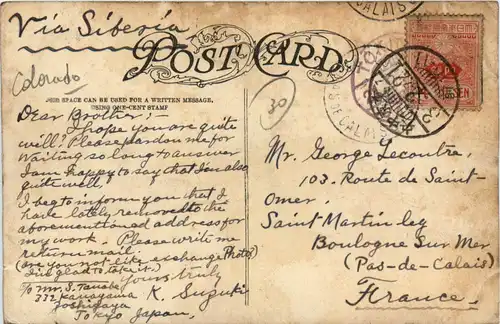 Via Siberia
CALAIS
POST CARD
Colorado
SPACE CAN BE USED FOR A WRITTEN MESSAGE,
USING ONE-CENT STAMP
30
Dear Brother:-
I hope you are quite
well! Please pardon me for
waiting so long to answer
I am happy to say that I am also
quite well,
I beg to inform you that I
have lately removed to the
aforementioned address for
my work. Please write me
return mail.
(are you not like exchange Photo?
I is glad to take it.)
Yours truly,
K. Suzuki
To Mr. S. Tanabe
372 Kanayama
Yoshigaya
Tokyo Japan,
Mr. George Lecoutre,
103. Route de Saint-
Omer,
Saint Martin leg
Boulogne Sur Mer
(Pas-de-Calais)
France.